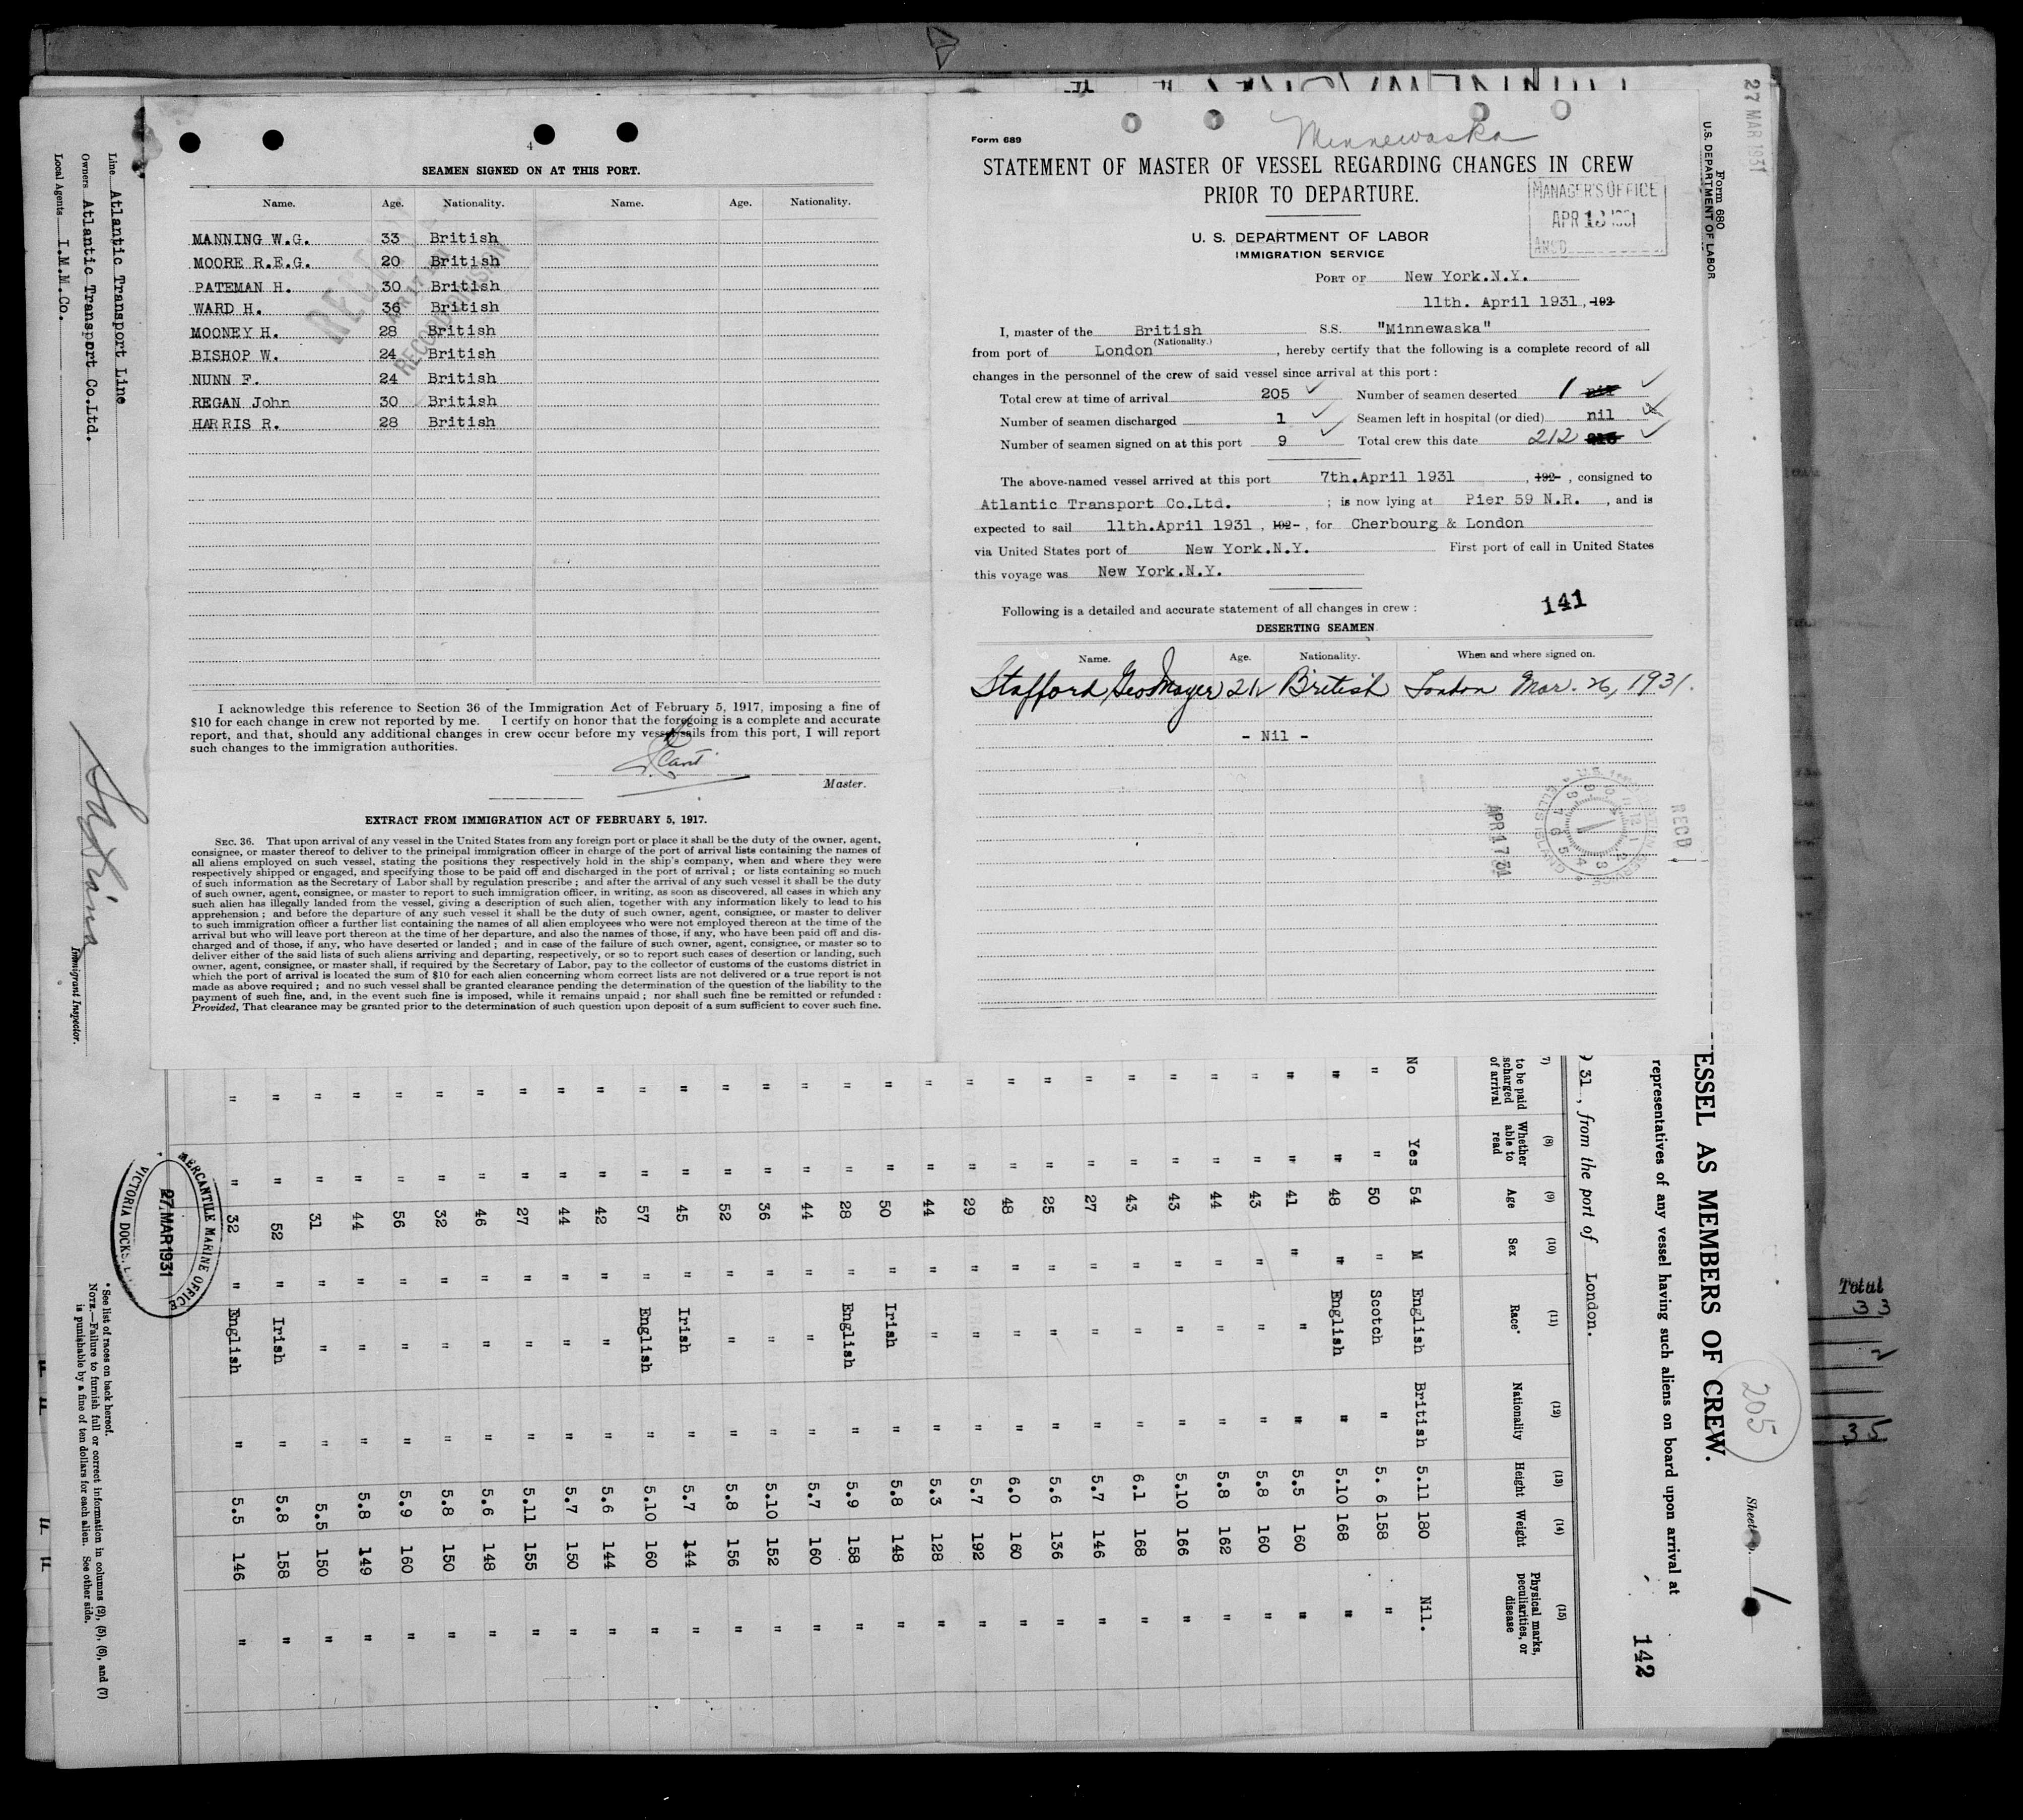 4
SEAMEN SIGNED ON AT THIS PORT.
Name. Age. Nationality. Name. Age. Nationality.
MANNING W.G. 33 British
MOORE R.E.G. 20 British
PATEMAN H. 30 British
WARD H. 36 British
MOONEY H. 28 British
BISHOP W. 24 British
NUNN F. 24 British
REGAN John 30 British
HARRIS R. 28 British
RECORD DIVISION
I acknowledge this reference to Section 36 of the Immigration Act of February 5, 1917, imposing a fine of
$10 for each change in crew not reported by me. I certify on honor that the foregoing is a complete and accurate
report, and that, should any additional changes in crew occur before my vessel sails from this port, I will report
such changes to the immigration authorities.
Master.
EXTRACT FROM IMMIGRATION ACT OF FEBRUARY 5, 1917.
SEC. 36. That upon arrival of any vessel in the United States from any foreign port or place it shall be the duty of the owner, agent,
consignee, or master thereof to deliver to the principal immigration officer in charge of the port of arrival lists containing the names of
all aliens employed on such vessel, stating the positions they respectively hold in the ship's company, when and where they were
respectively shipped or engaged, and specifying those to be paid off and discharged in the port of arrival ; or lists containing so much
of such information as the Secretary of Labor shall by regulation prescribe ; and after the arrival of any such vessel it shall be the duty
of such owner, agent, consignee, or master to report to such immigration officer, in writing, as soon as discovered, all cases in which any
such alien has illegally landed from the vessel, giving a description of such alien, together with any information likely to lead to his
apprehension ; and before the departure of any such vessel it shall be the duty of such owner, agent, consignee, or master to deliver
to such immigration officer a further list containing the names of all alien employees who were not employed thereon at the time of the
arrival but who will leave port thereon at the time of her departure, and also the names of those, if any, who have been paid off and dis-
charged and of those, if any, who have deserted or landed ; and in case of the failure of such owner, agent, consignee, or master so to
deliver either of the said lists of such aliens arriving and departing, respectively, or so to report such cases of desertion or landing, such
owner, agent, consignee, or master shall, if required by the Secretary of Labor, pay to the collector of customs of the customs district in
which the port of arrival is located the sum of $10 for each alien concerning whom correct lists are not delivered or a true report is not
made as above required ; and no such vessel shall be granted clearance pending the determination of the question of the liability to the
payment of such fine, and, in the event such fine is imposed, while it remains unpaid ; nor shall such fine be remitted or refunded :
Provided, That clearance may be granted prior to the determination of such question upon deposit of a sum sufficient to cover such fine.
Form 689
Minnewaska
STATEMENT OF MASTER OF VESSEL REGARDING CHANGES IN CREW
PRIOR TO DEPARTURE.
MANAGER'S OFFICE
APR 13 1931
ANSD
U. S. DEPARTMENT OF LABOR
IMMIGRATION SERVICE
PORT OF New York.N.Y.
11th. April 1931, 192
I, master of the British S.S. "Minnewaska"
(Nationality.)
from port of London , hereby certify that the following is a complete record of all
changes in the personnel of the crew of said vessel since arrival at this port :
Total crew at time of arrival 205 Number of seamen deserted 1 nil
Number of seamen discharged 1 Seamen left in hospital (or died) nil
Number of seamen signed on at this port 9 Total crew this date 212 213
The above-named vessel arrived at this port 7th.April 1931 , 192 , consigned to
Atlantic Transport Co.Ltd. ; is now lying at Pier 59 N.R. , and is
expected to sail 11th.April 1931 , 192 , for Cherbourg & London
via United States port of New York.N.Y. First port of call in United States
this voyage was New York.N.Y.
Following is a detailed and accurate statement of all changes in crew : 141
DESERTING SEAMEN
Name. Age. Nationality. When and where signed on.
Stafford, Geo Mayer 21 British London Mar. 26, 1931.
- Nil -
APR 17 31
ELLIS ISLAND
RECD
27 MAR 1931
Form 680
U.S. DEPARTMENT OF LABOR
Line Atlantic Transport Line
Owners Atlantic Transport Co.Ltd.
Local Agents I.M.M.Co.
Immigrant Inspector.
ESSEL AS MEMBERS OF CREW.
205
Sheet No. 1
representatives of any vessel having such aliens on board upon arrival at
142
31 , from the port of London.
7) to be paid scharged of arrival
(8) Whether able to read
(9) Age
(10) Sex
(11) Race*
(12) Nationality
(13) Height
(14) Weight
(15) Physical marks, peculiarities, or disease
No Yes 54 M English British 5.11 180 Nil.
" " 50 " Scotch " 5. 6 158 "
" " 48 " English " 5.10 168 "
" " 41 " " " 5.5 160 "
" " 43 " " " 5.8 160 "
" " 44 " " " 5.8 162 "
" " 43 " " " 5.10 166 "
" " 43 " " " 6.1 168 "
" " 27 " " " 5.7 146 "
" " 25 " " " 5.6 136 "
" " 48 " " " 6.0 160 "
" " 29 " " " 5.7 192 "
" " 44 " " " 5.3 128 "
" " 50 " Irish " 5.8 148 "
" " 28 " English " 5.9 158 "
" " 44 " " " 5.7 160 "
" " 36 " " " 5.10 152 "
" " 52 " " " 5.8 156 "
" " 45 " Irish " 5.7 144 "
" " 57 " English " 5.10 160 "
" " 42 " " " 5.6 144 "
" " 44 " " " 5.7 150 "
" " 27 " " " 5.11 155 "
" " 46 " " " 5.6 148 "
" " 32 " " " 5.8 150 "
" " 56 " " " 5.9 160 "
" " 44 " " " 5.8 149 "
" " 31 " " " 5.5 150 "
" " 52 " Irish " 5.8 158 "
" " 32 " English " 5.5 146 "
MERCANTILE MARINE OFFICE
27.MAR1931
VICTORIA DOCKS
* See list of races on back hereof.
NOTE.—Failure to furnish full or correct information in columns (2), (5), (6), and (7)
is punishable by a fine of ten dollars for each alien. See other side.
Total
33
35